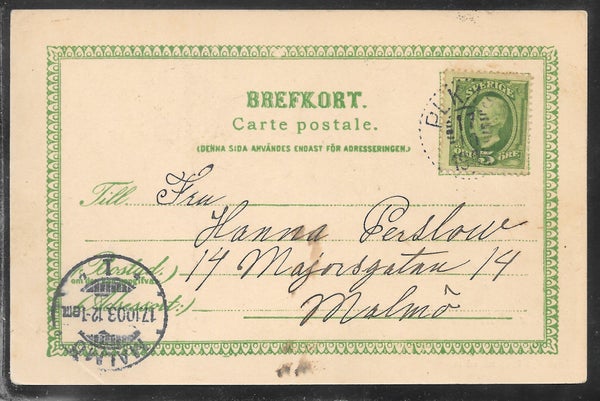 BREFKORT.
Carte postale.
(DENNA SIDA ANVÄNDES ENDAST FÖR ADRESSERINGEN.)
SVERIGE
5
ÖRE
Till Fru
Hanna Perslow
14 Majorsgatan 14
Malmö
(Bostad)
(Adressort:)
1
17.10.03.12-1.EM.
MALMÖ